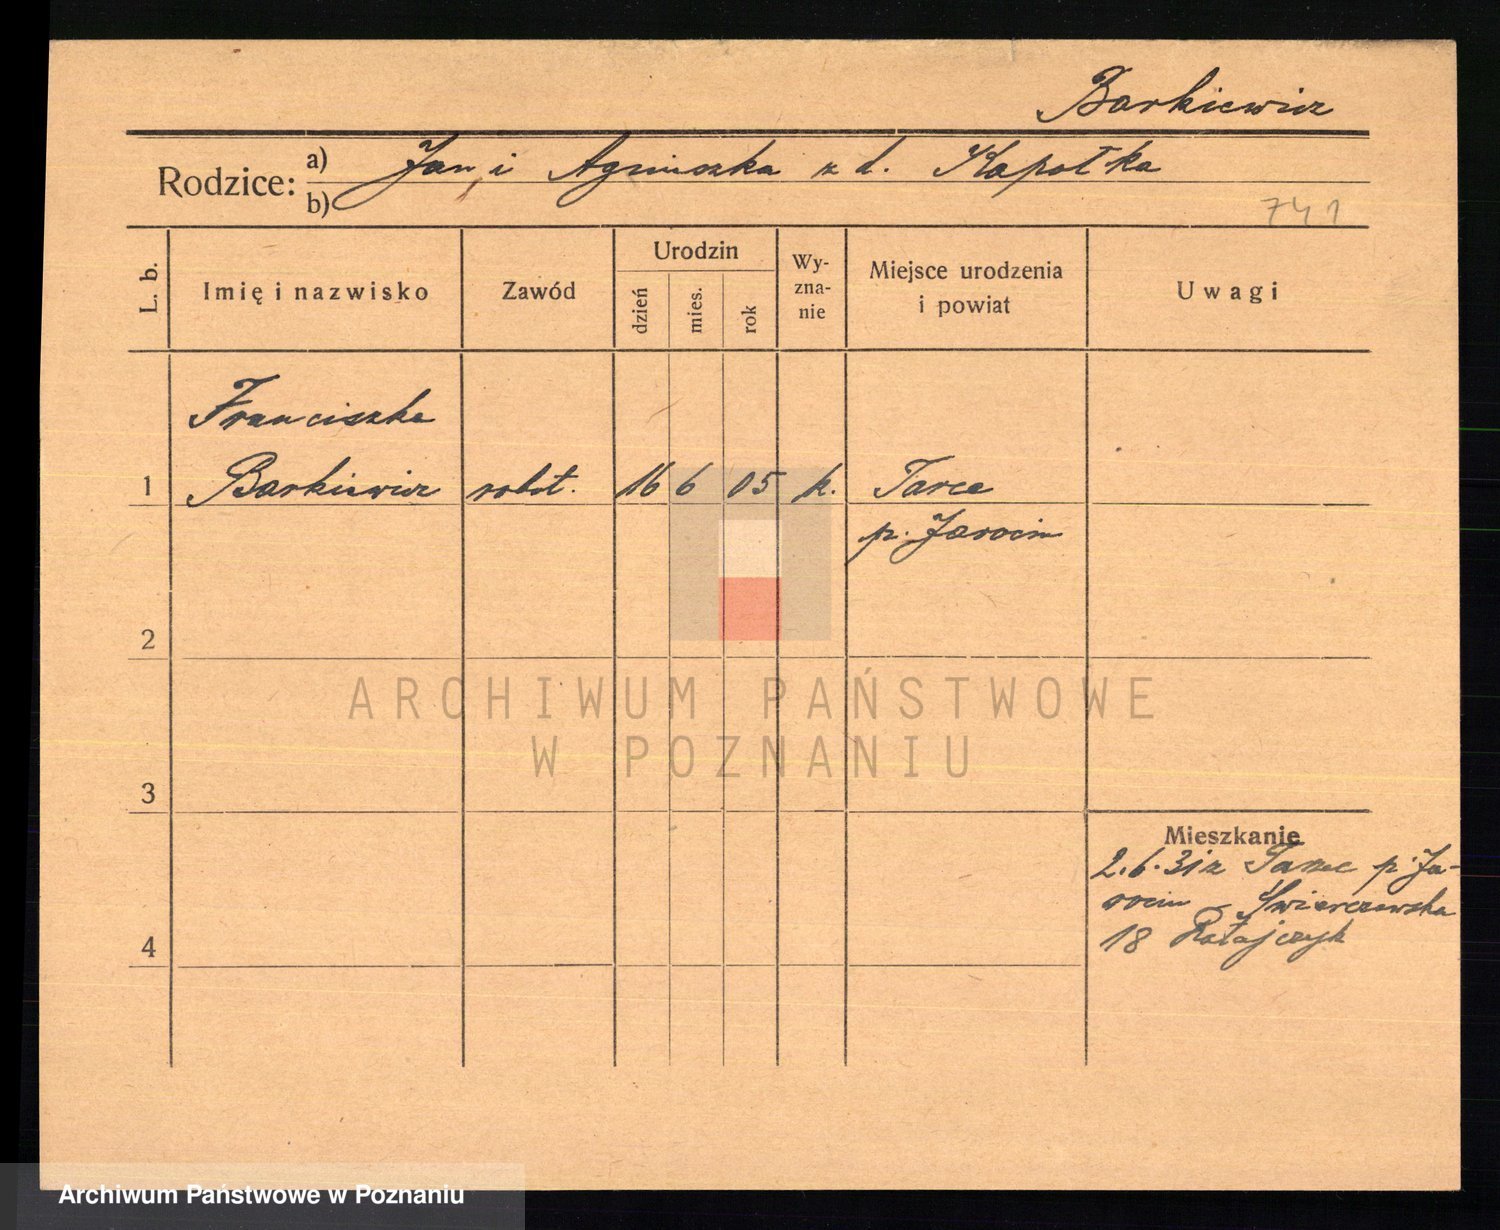 Barkiewicz
Rodzice: a) Jan i Agnieszka z d. Kapołka
b)
741
L. b. Imię i nazwisko Zawód Urodzin dzień mies. rok Wy-
zna-
nie Miejsce urodzenia
i powiat Uwagi
Franciszka
1 Barkiewicz robot. 16 6 05 k. Tarce
p. Jarocin
2
ARCHIWUM PAŃSTWOWE
W POZNANIU
3
Mieszkanie
2.6.31 z Tarzec p. Ja-
rocin - Świerczewska
4 18 Ratajczyk
Archiwum Państwowe w Poznaniu